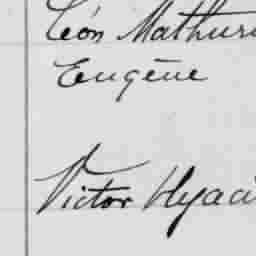 Léon Mathuri
Eugène
Victor Hyaci